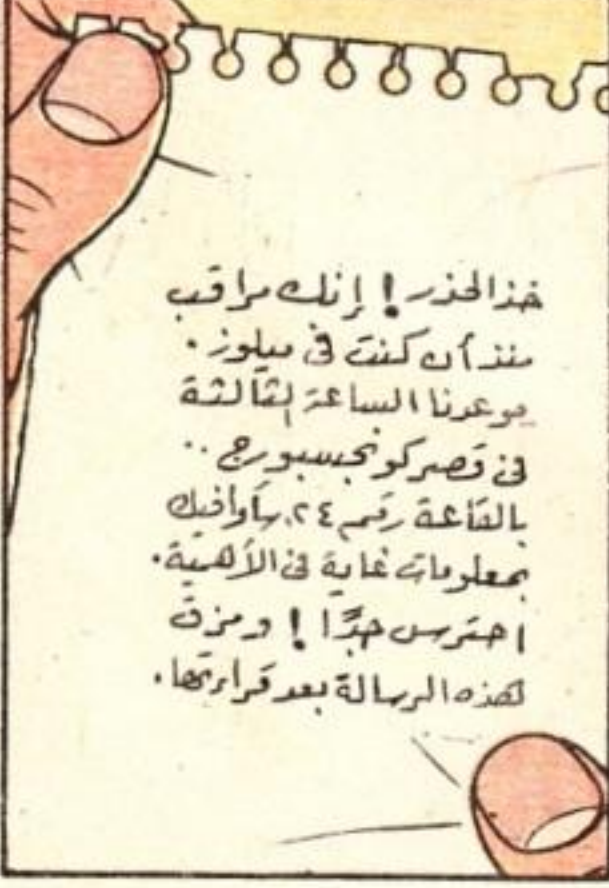 خذ الحذر! إنك مراقب
منذ أن كنت في ميلوز.
موعدنا الساعة الثالثة
في قصر كونجسبورج..
بالقاعة رقم ٢٤. سأوافيك
بمعلومات غاية في الأهمية.
احترس جدًّا! ومزق
هذه الرسالة بعد قراءتها.